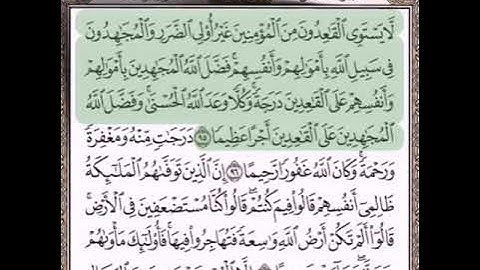 لَّا يَسْتَوِى ٱلْقَٰعِدُونَ مِنَ ٱلْمُؤْمِنِينَ غَيْرُ أُو۟لِى ٱلضَّرَرِ وَٱلْمُجَٰهِدُونَ
فِى سَبِيلِ ٱللَّهِ بِأَمْوَٰلِهِمْ وَأَنفُسِهِمْ ۚ فَضَّلَ ٱللَّهُ ٱلْمُجَٰهِدِينَ بِأَمْوَٰلِهِمْ
وَأَنفُسِهِمْ عَلَى ٱلْقَٰعِدِينَ دَرَجَةً ۚ وَكُلًّا وَعَدَ ٱللَّهُ ٱلْحُسْنَىٰ ۚ وَفَضَّلَ ٱللَّهُ
ٱلْمُجَٰهِدِينَ عَلَى ٱلْقَٰعِدِينَ أَجْرًا عَظِيمًا ٩٥ دَرَجَٰتٍ مِّنْهُ وَمَغْفِرَةً
وَرَحْمَةً ۚ وَكَانَ ٱللَّهُ غَفُورًا رَّحِيمًا ٩٦ إِنَّ ٱلَّذِينَ تَوَفَّىٰهُمُ ٱلْمَلَٰٓئِكَةُ
ظَالِمِىٓ أَنفُسِهِمْ قَالُوا۟ فِيمَ كُنتُمْ ۖ قَالُوا۟ كُنَّا مُسْتَضْعَفِينَ فِى ٱلْأَرْضِ ۚ
قَالُوٓا۟ أَلَمْ تَكُنْ أَرْضُ ٱللَّهِ وَٰسِعَةً فَتُهَاجِرُوا۟ فِيهَا ۚ فَأُو۟لَٰٓئِكَ مَأْوَىٰهُمْ